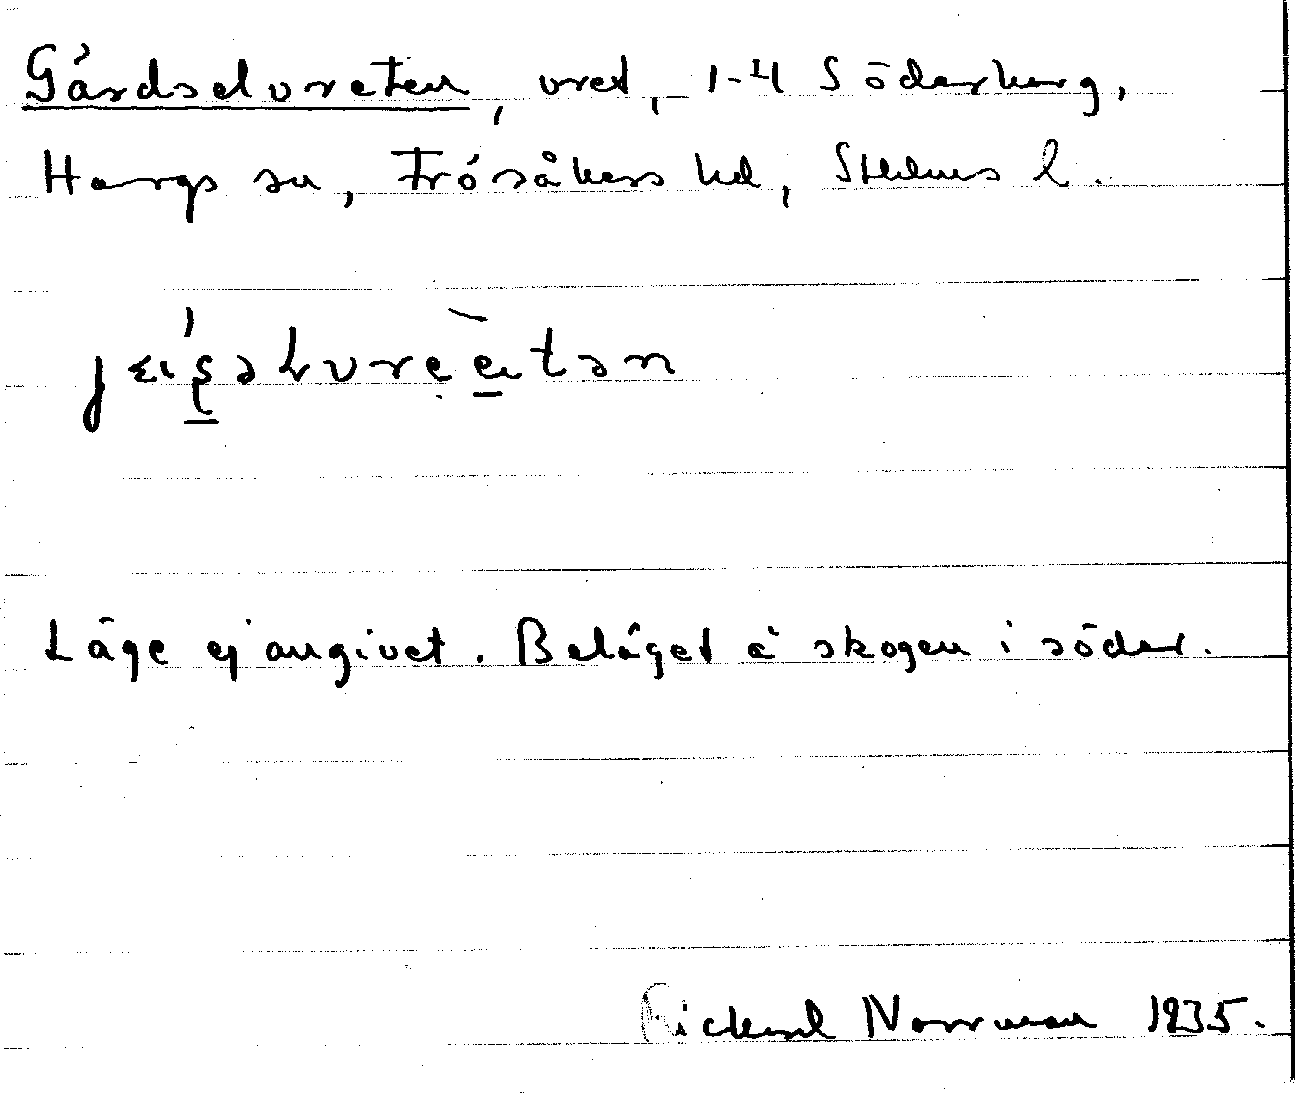 Gärdselvreten, vret, 1-4 Söderberg,
Hargs sn, Frösåkers hd, Sthlms l.
Läge ej angivet. Beläget å skogen i söder.
Rickard Norrman 1935.